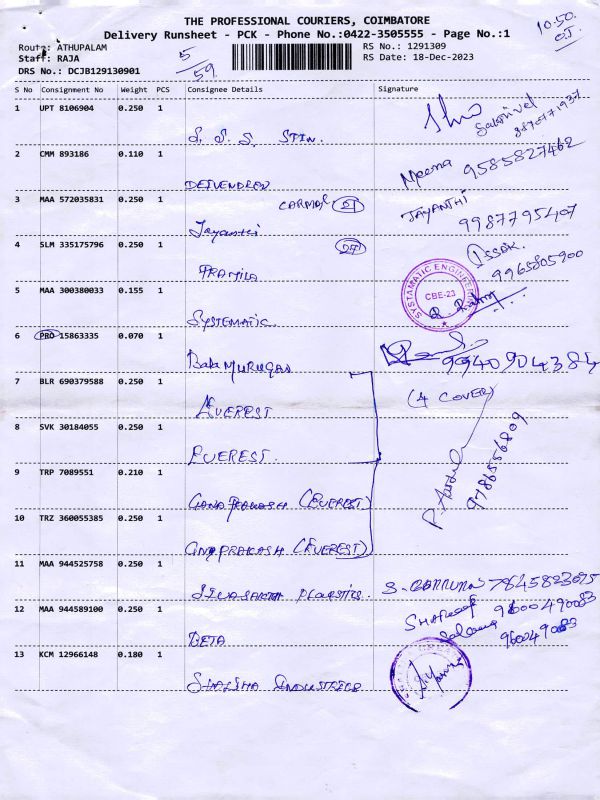 THE PROFESSIONAL COURIERS, COIMBATORE
10.50
Delivery Runsheet - PCK - Phone No.:0422-3505555 - Page No.:1
Route: ATHUPALAM
5/59
RS No.: 1291309
Staff: RAJA
RS Date: 18-Dec-2023
DRS No.: DCJB129130901
S No Consignment No Weight PCS Consignee Details Signature
1 UPT 8106904 0.250 1
S. S. S. STIN.
Sakthivel
2 CMM 893186 0.110 1
DEIVENDREN
Meena 9585827462
3 MAA 572035831 0.250 1
CARMAL
Jayanthi
JAYANTHI
9987795407
4 SLM 335175796 0.250 1
PRAMILA
9965805900
5 MAA 300380033 0.155 1
SYSTEMATIC
SYSTAMATIC ENGINEER
CBE-23
6 PRO 15863335 0.070 1
Bala MURUGAN
9940904384
7 BLR 690379588 0.250 1
EVEREST
(4 COVER)
8 SVK 30184055 0.250 1
EVEREST.
9786556809
9 TRP 7089551 0.210 1
GANAPRAKASH (EVEREST)
10 TRZ 360055385 0.250 1
GNAPRAKASH (EVEREST)
11 MAA 944525758 0.250 1
SIVASAKTHI PLASTICS.
7845823095
12 MAA 944589100 0.250 1
BETA
9600490083
960049083
13 KCM 12966148 0.180 1
SHALSHA INDUSTRIES